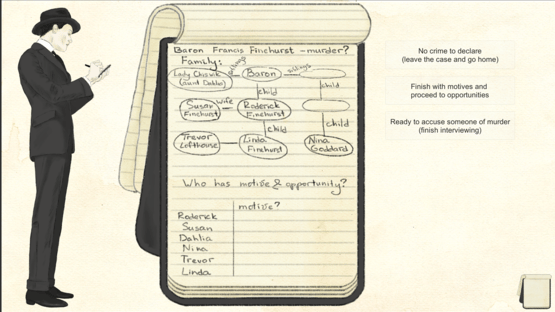 Baron Francis Finehurst - murder?
Family:
Lady Chiswick
(aunt Dahlia)
siblings
Baron
siblings
child
child
Susan
Finehurst
wife
Roderick
Finehurst
child
child
Trevor
Lofthouse
Linda
Finehurst
Nina
Goddard
Who has motive & opportunity?
motive?
Roderick
Susan
Dahlia
Nina
Trevor
Linda
No crime to declare
(leave the case and go home)
Finish with motives and
proceed to opportunities
Ready to accuse someone of murder
(finish interviewing)